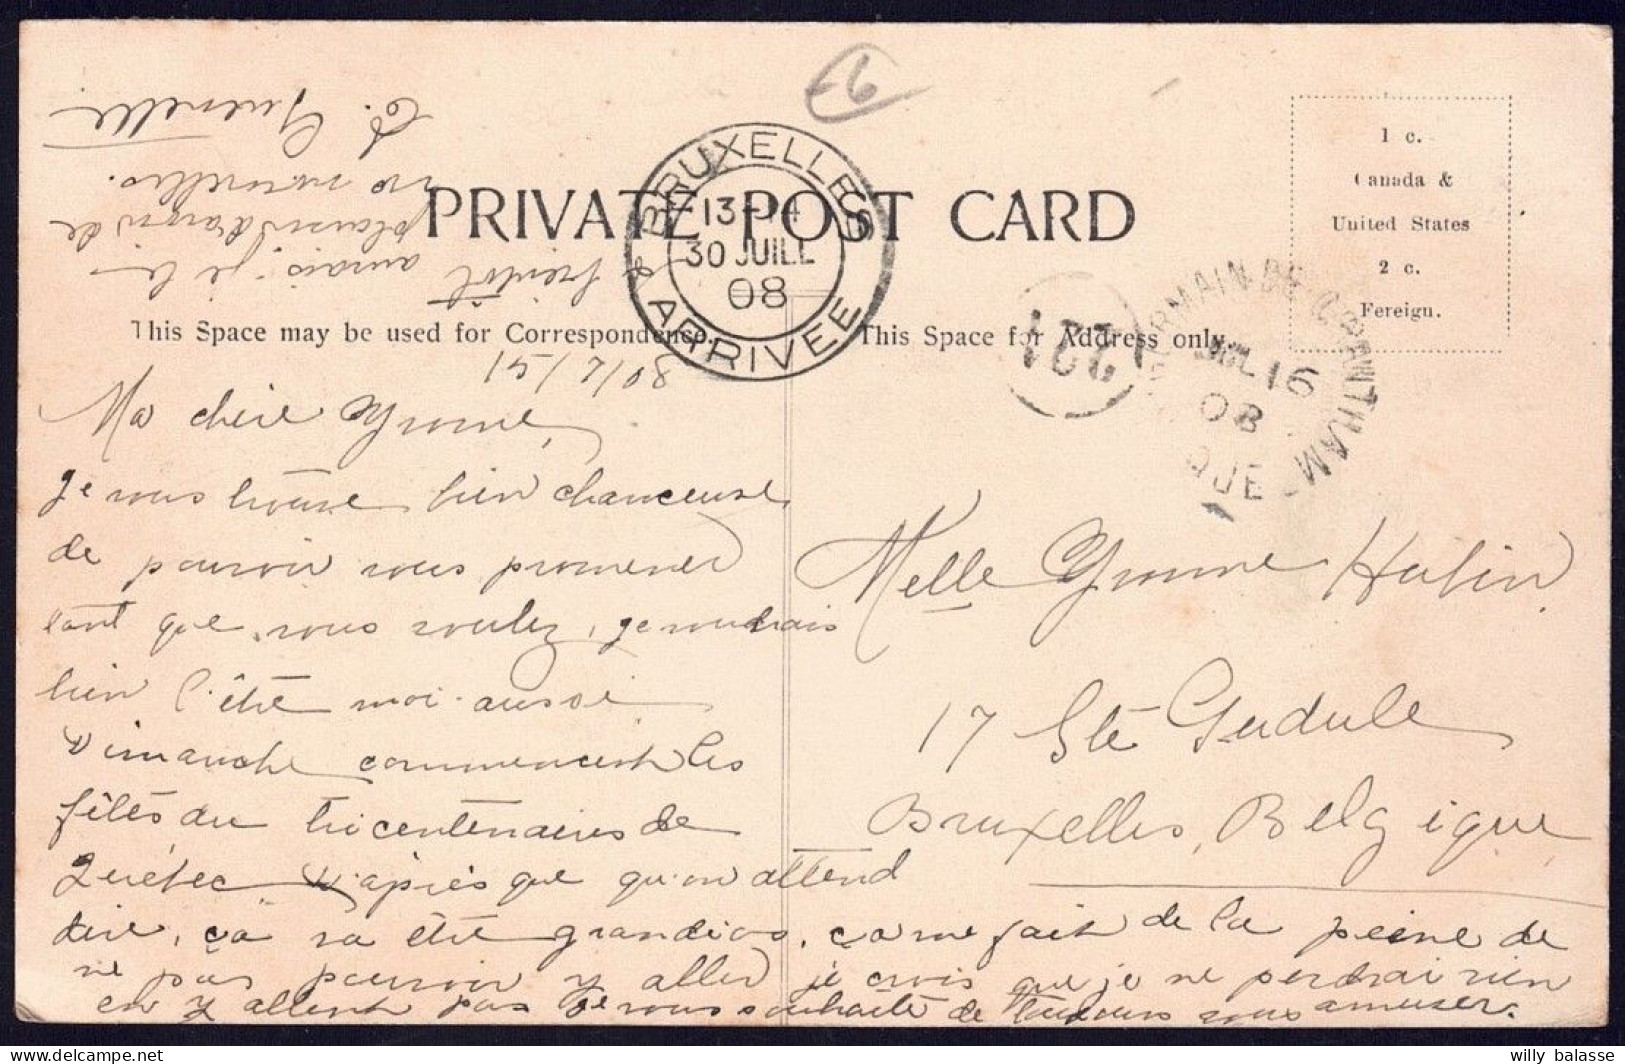 PRIVATE POST CARD
This Space may be used for Correspondence.
This Space for Address only.
1 c.
Canada &
United States
2 c.
Foreign.
BRUXELLES
13-14
30 JUILL
08
ARRIVEE
GERMAIN DE GRANTHAM
JUL 16
08
QUE
15/7/08
Ma chère Yvonne,
Je vous trouve bien chanceuse
de pouvoir vous promener
tant que vous voulez, je voudrais
bien l'être moi aussi
Dimanche commencent les
fêtes du tricentenaire de
Québec D'après que qu'on attend
dire, ça va être grandiose, ça me fait de la peine de
ne pas pouvoir y aller je crois que je ne perdrai rien
en y allant pas Je vous souhaite de toujours vous amuser.
à bientôt aurais-je le
plaisir d'avoir de
vos nouvelles.
Melle Yvonne Hubin
17 Ste Gudule
Bruxelles, Belgique
6
willy balasse